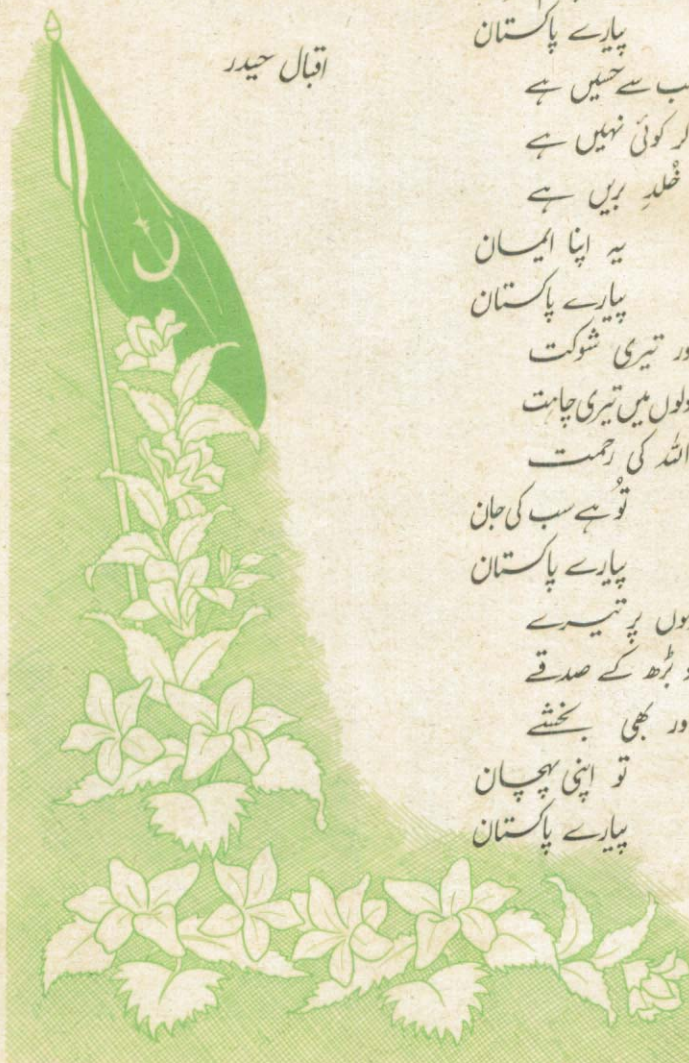 پیارے پاکستان
اقبال حیدر
سب سے حسیں ہے
کوئی نہیں ہے
خُلدِ بریں ہے
یہ اپنا ایمان
پیارے پاکستان
تیری شوکت
دلوں میں تیری چاہت
اللہ کی رحمت
تُو ہے سب کی جان
پیارے پاکستان
پر تیرے
بڑھ کے صدقے
اور بھی بخشے
تو اپنی پہچان
پیارے پاکستان